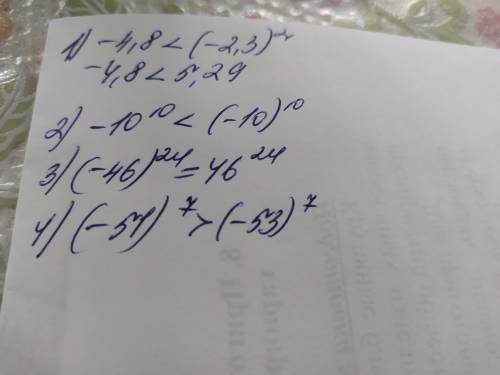 1) -4,8 < (-2,3)²
-4,8 < 5,29
2) -10¹⁰ < (-10)¹⁰
3) (-46)²⁴ = 46²⁴
4) (-51)⁷ > (-53)⁷